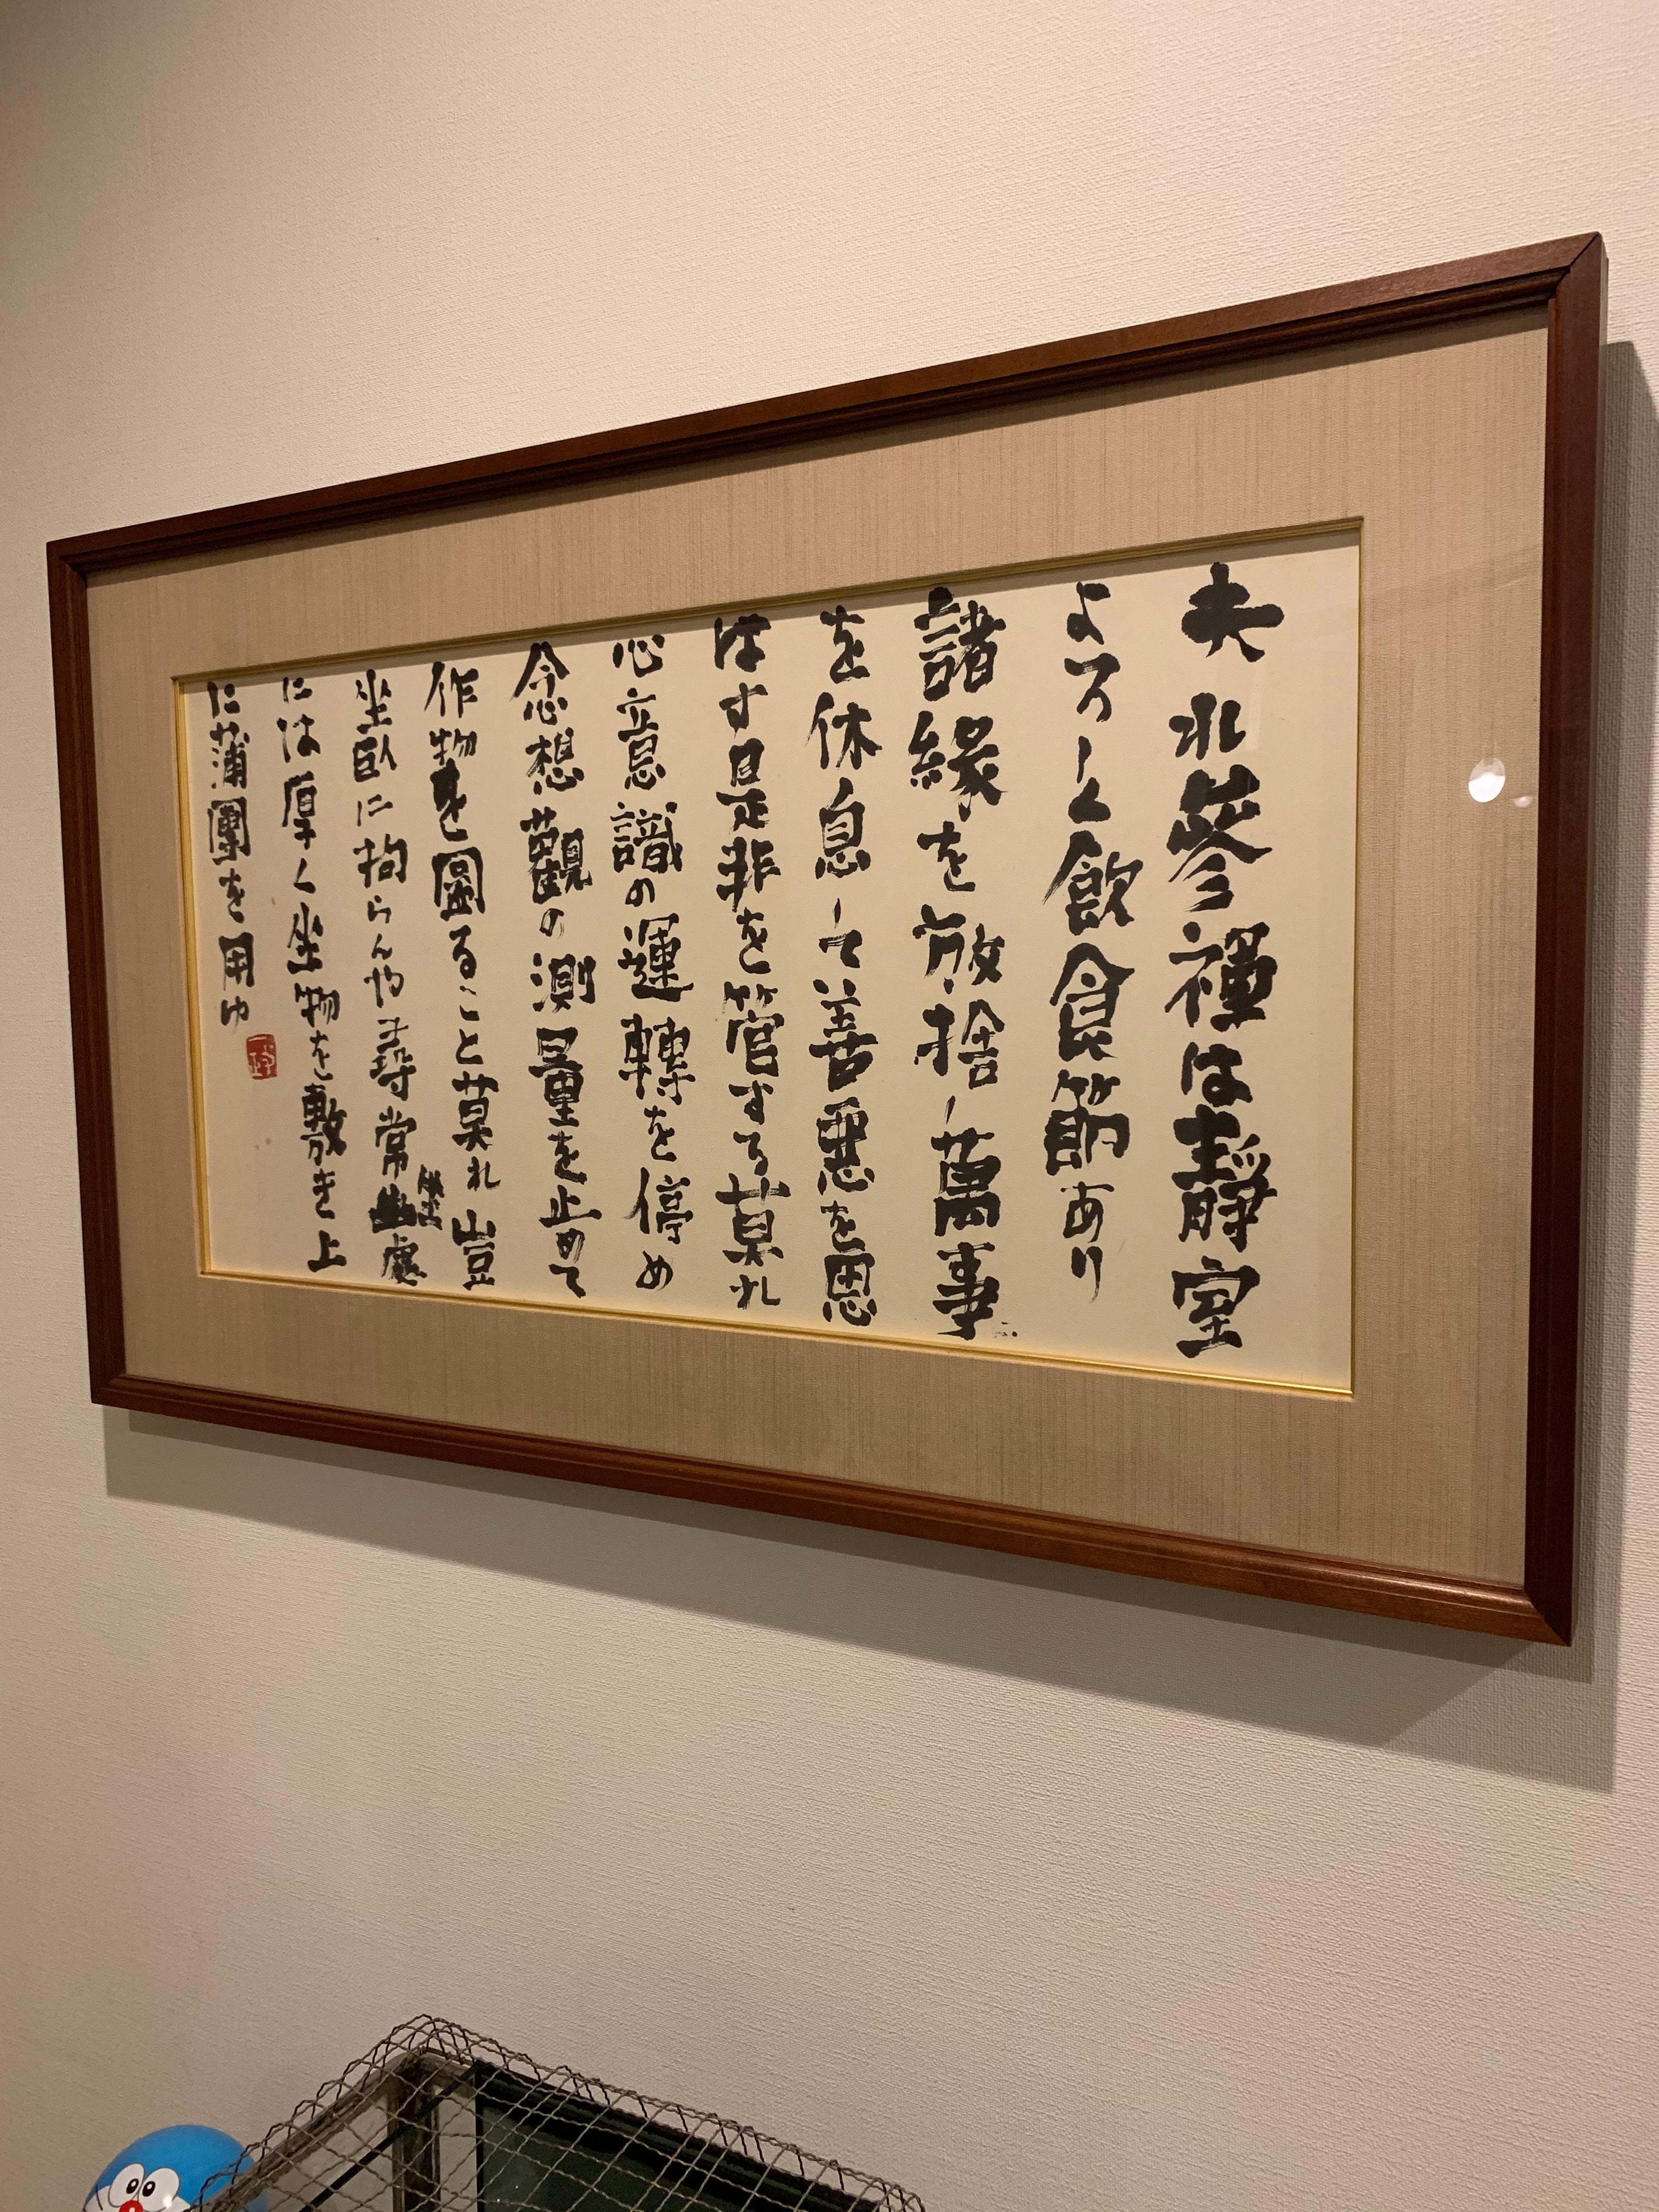 夫れ參禪は静室
よろしく飲食節あり
諸縁を放捨し萬事
を休息して善悪を思
はず是非を管する莫れ
心意識の運轉を停め
念想觀の測量を止めて
作物を圖ること莫れ豈
坐臥に拘らんや尋常坐處
には厚く坐物を敷き上
に蒲團を用ゆ